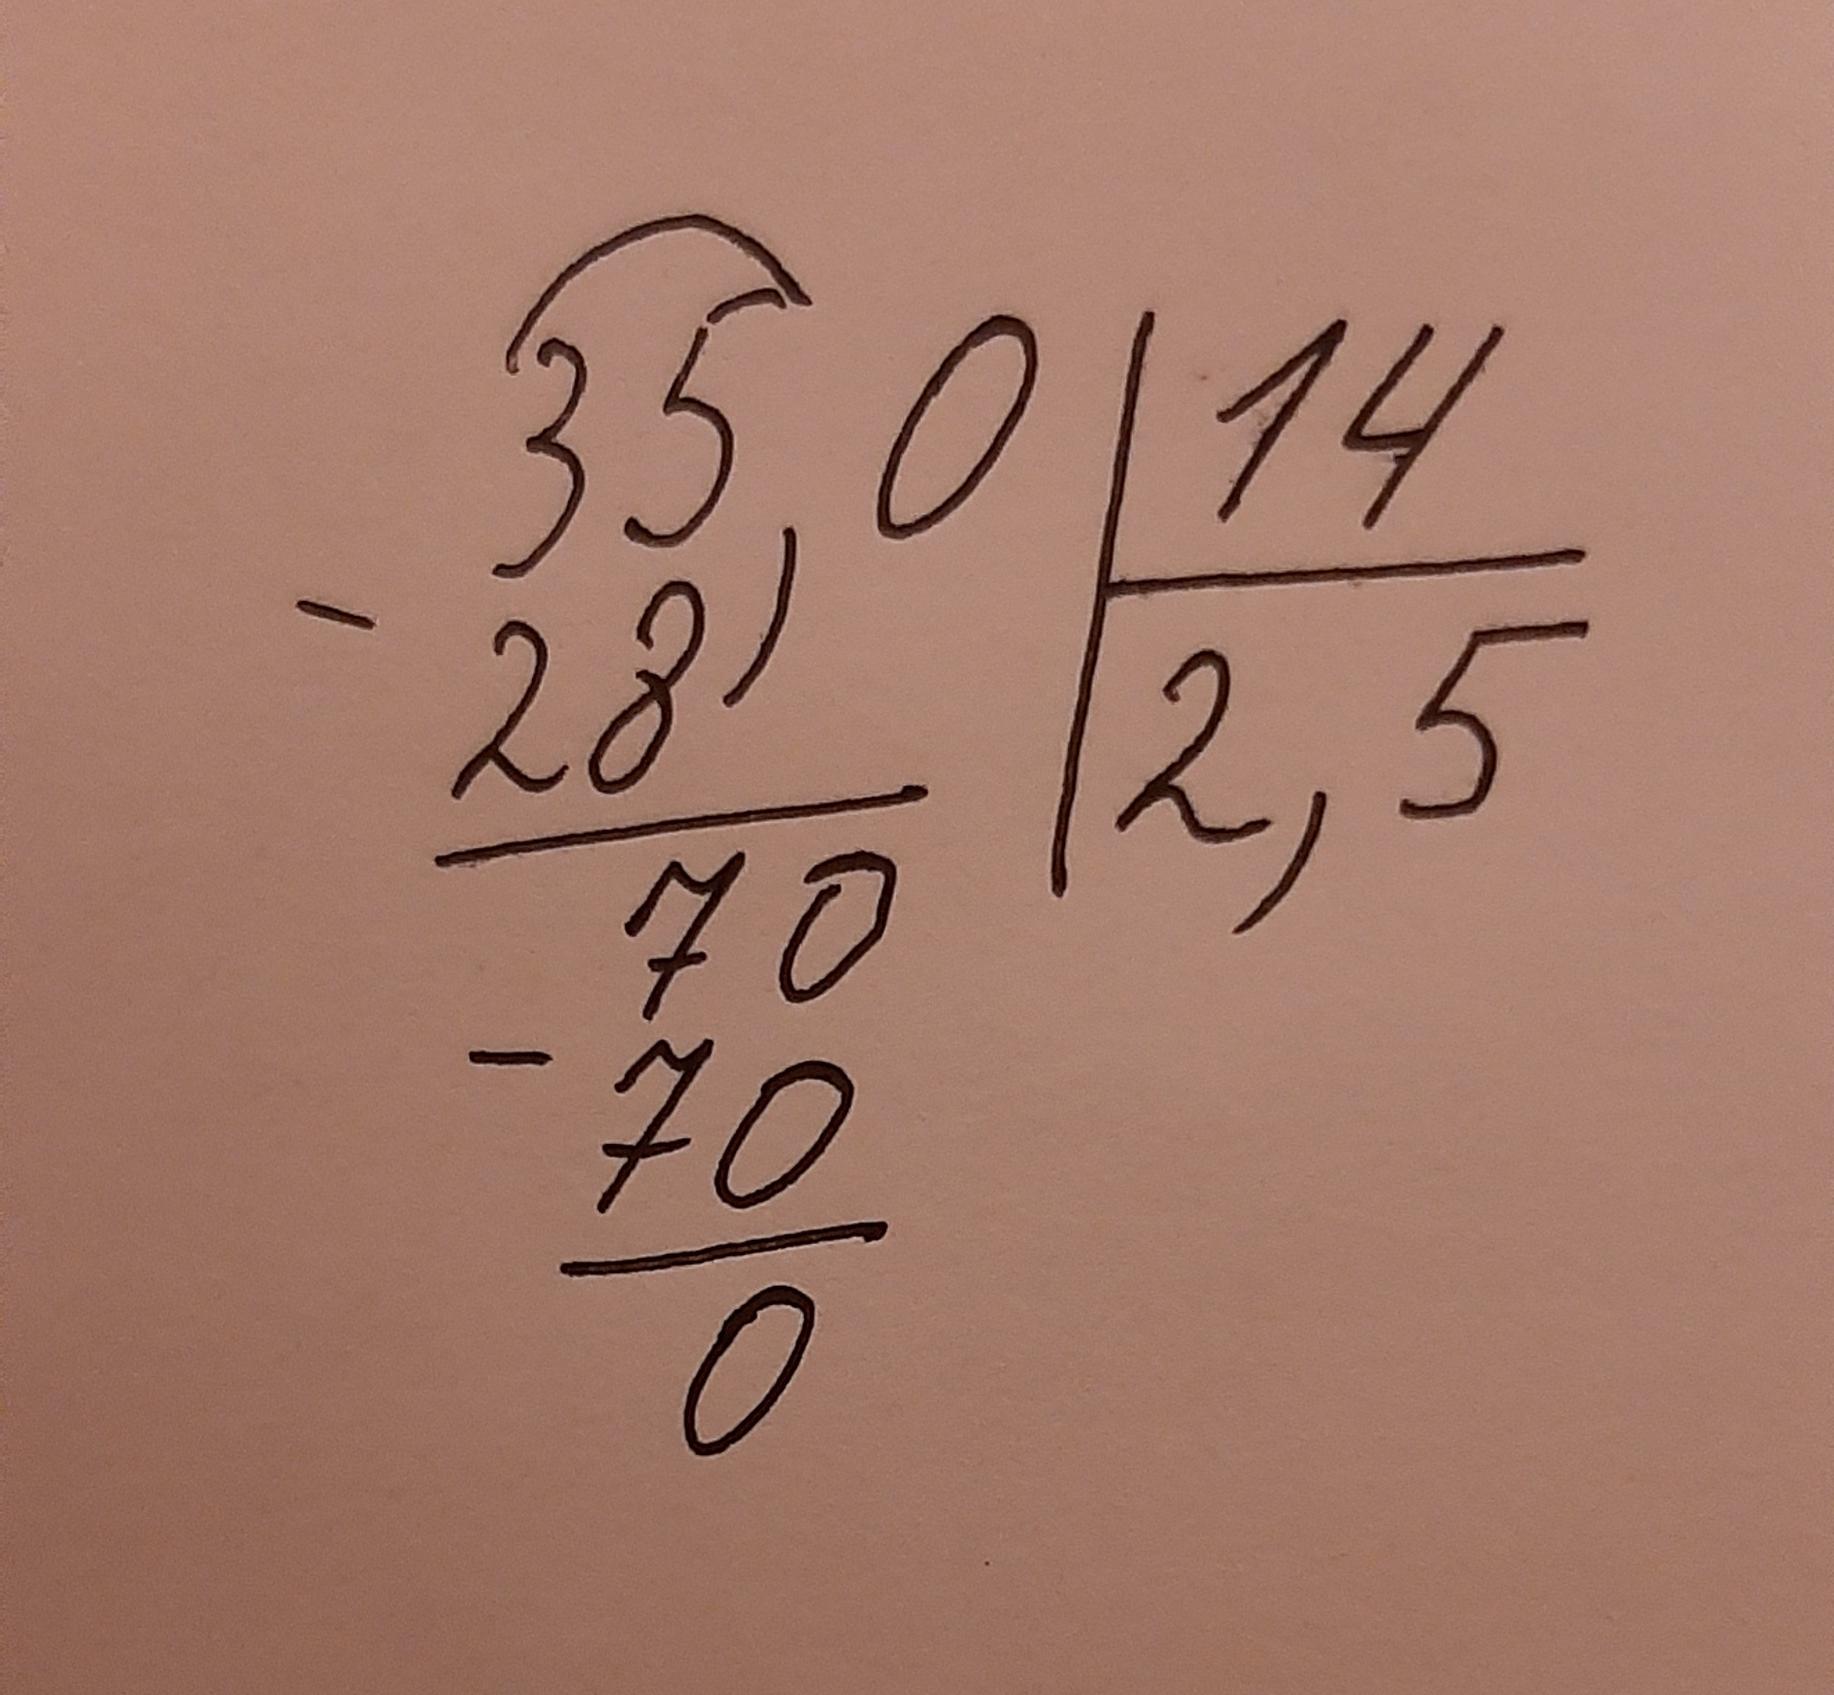 35,0 14
- 28 2,5
70
- 70
0